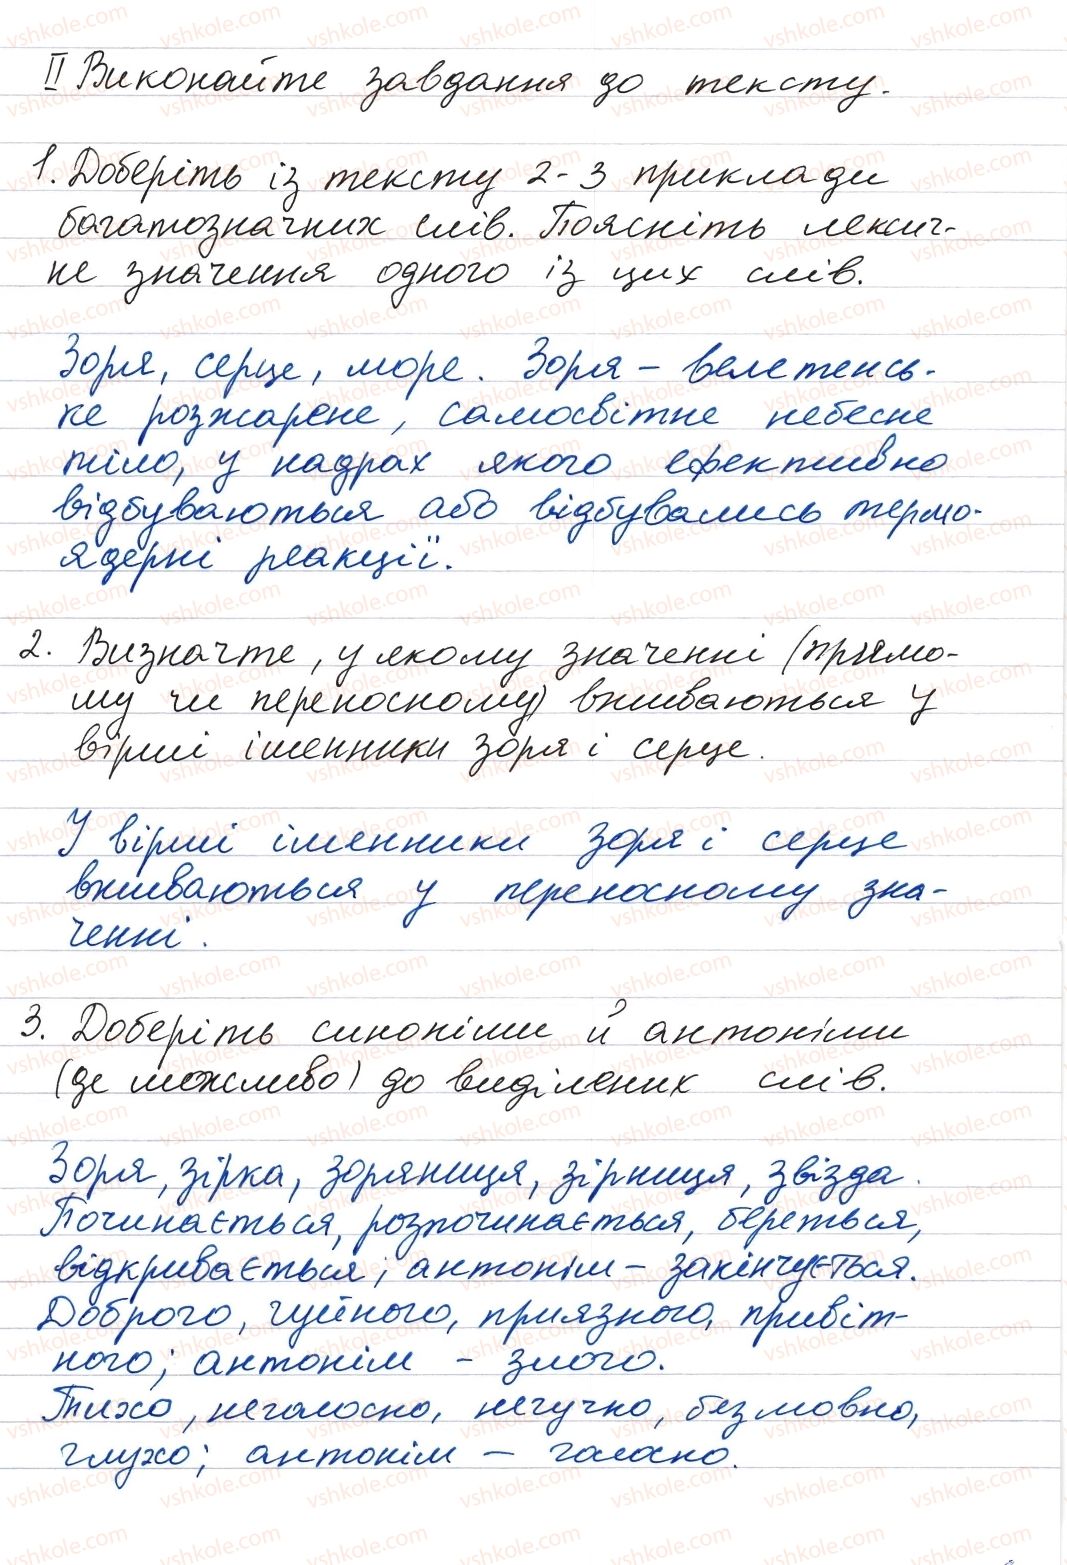 II Виконайте завдання до тексту.
1. Доберіть із тексту 2-3 приклади
багатозначних слів. Поясніть лексич-
не значення одного із цих слів.
Зоря, серце, море. Зоря – велетенсь-
ке розжарене, самосвітне небесне
тіло, у надрах якого ефективно
відбуваються або відбувались термо-
ядерні реакції.
2. Визначте, у якому значенні (прямо-
му чи переносному) вживаються у
вірші іменники зоря і серце.
У вірші іменники зоря і серце
вживаються у переносному зна-
ченні.
3. Доберіть синоніми й антоніми
(де можливо) до виділених слів.
Зоря, зірка, зоряниця, зірниця, звізда.
Починається, розпочинається, береться,
відкривається; антонім – закінчується.
Доброго, чуйного, приязного, привіт-
ного; антонім – злого.
Тихо, неголосно, негучно, безмовно,
глухо; антонім – голосно.